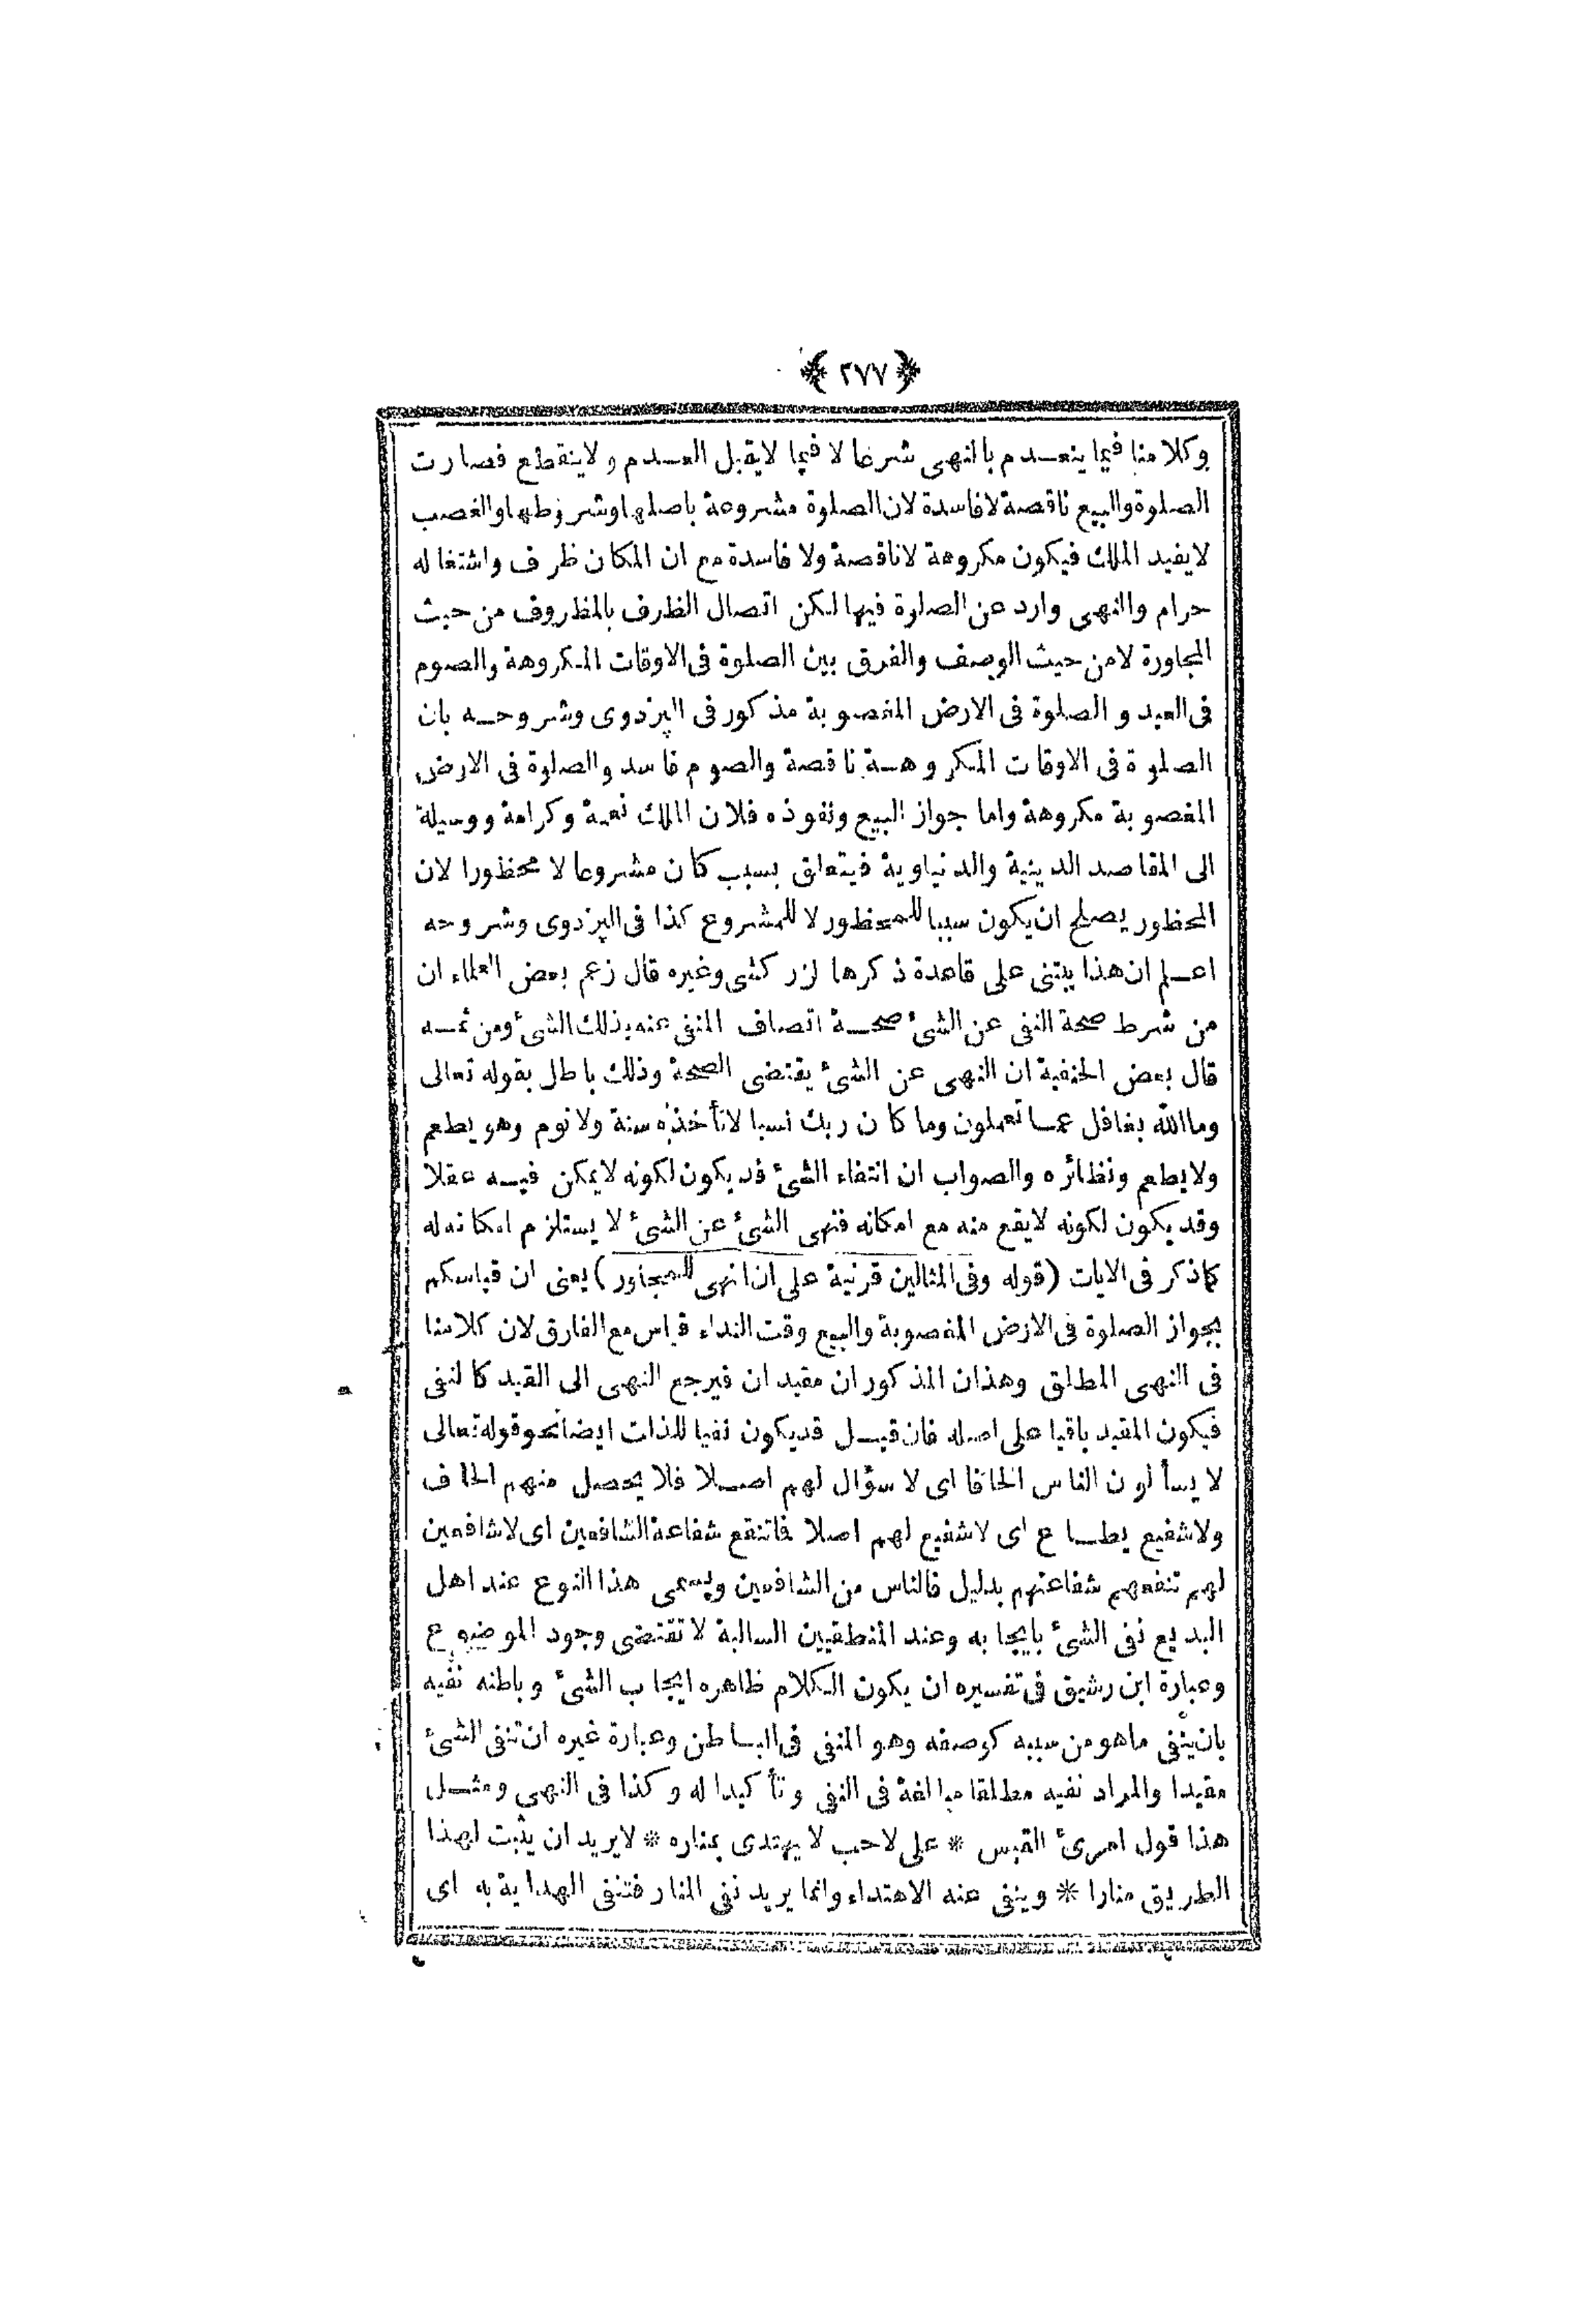 ﴿ ٢٧٧ ﴾
وكلامنا فيما ينعدم بالنهى شرعا لا فيما لايقبل العدم ولاينقطع فصارت
الصلوة والبيع ناقصة لافاسدة لان الصلوة مشروعة باصلها وشروطها والغصب
لايفيد الملك فيكون مكروهة لاناقصة ولا فاسدة مع ان المكان ظرف واشتغاله
حرام والنهى وارد عن الصلوة فيها لكن اتصال الظرف بالمظروف من حيث
المجاورة لامن حيث الوصف والفرق بين الصلوة فى الاوقات المكروهة والصوم
فى العيد والصلوة فى الارض المغصوبة مذكور فى البزدوى وشروحه بان
الصلوة فى الاوقات المكروهة ناقصة والصوم فاسد والصلوة فى الارض
المغصوبة مكروهة واما جواز البيع ونفوذه فلان الملك نعمة وكرامة ووسيلة
الى المقاصد الدينية والدنياوية فيتعلق بسبب كان مشروعا لا محظورا لان
المحظور يصلح ان يكون سببا للمحظور لا للمشروع كذا فى البزدوى وشروحه
اعلم ان هذا يبتنى على قاعدة ذكرها لزركشى وغيره قال زعم بعض العلماء ان
من شرط صحة النفى عن الشئ صحة اتصاف المنفى عنه بذلك الشئ ومن ثمه
قال بعض الحنفية ان النهى عن الشئ يقتضى الصحة وذلك باطل بقوله تعالى
وماالله بغافل عما تعملون وما كان ربك نسيا لاتأخذه سنة ولانوم وهو يطعم
ولايطعم ونظائره والصواب ان انتفاء الشئ قد يكون لكونه لايمكن فيه عقلا
وقد يكون لكونه لايقع منه مع امكانه فنهى الشئ عن الشئ لا يستلزم امكانه له
كماذكر فى الايات (قوله وفى المثالين قرنية على ان انهى للمجاور) يعنى ان قياسكم
بجواز الصلوة فى الارض المغصوبة والبيع وقت النداء قياس مع الفارق لان كلامنا
فى النهى المطلق وهذان المذكوران مقيدان فيرجع النهى الى القيد كالنفى
فيكون المقيد باقيا على اصله فان قيل قديكون نفيا للذات ايضا نحو قوله تعالى
لا يسألون الناس الحافا اى لا سؤال لهم اصلا فلا يحصل منهم الحاف
ولاشفيع يطاع اى لاشفيع لهم اصلا فاتنفع شفاعة الشافعين اى لاشافعين
لهم تنفعهم شفاعتهم بدليل فالناس من الشافعين ويسمى هذا النوع عند اهل
البديع نفى الشئ بايجابه وعند المنطقيين السالبة لاتقتضى وجود الموضوع
وعبارة ابن رشيق فى تفسيره ان يكون الكلام ظاهره ايجاب الشئ وباطنه نفيه
بان ينفى ماهو من سببه كوصفه وهو المنفى فى الباطن وعبارة غيره ان تنفى الشئ
مقيدا والمراد نفيه مطلقا مبالغة فى النفى وتأكيدا له وكذا فى النهى ومثل
هذا قول امرئ القيس * على لاحب لا يهتدى بمناره * لايريد ان يثبت لهذا
الطريق منارا * وينفى عنه الاهتداء وانما يريد نفى المنار فتنفى الهداية به اى